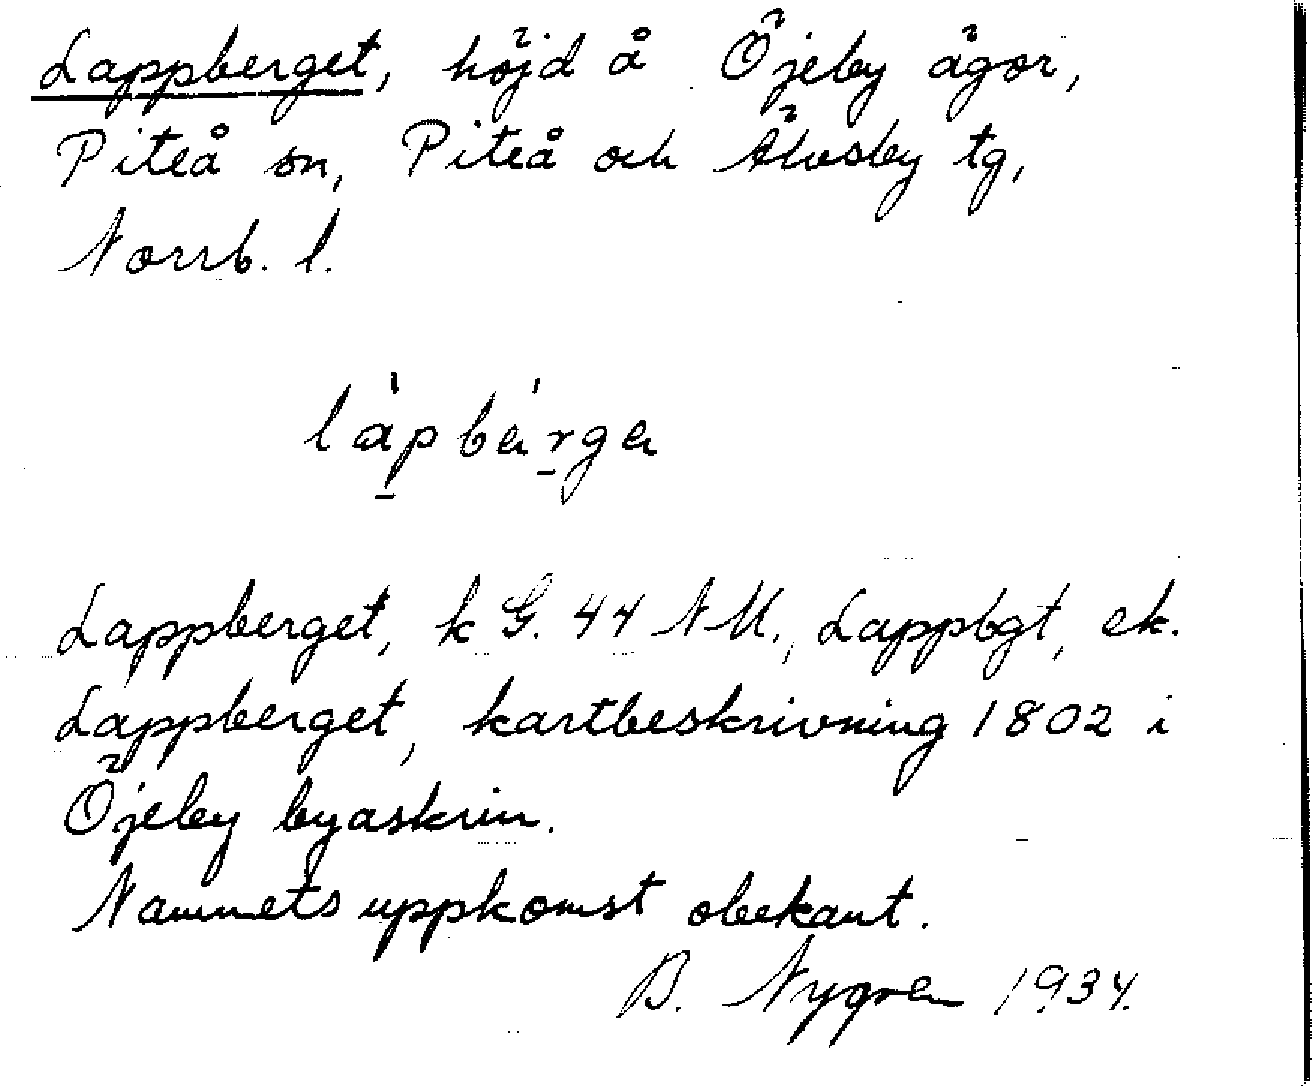 Lappberget, höjd å Öjeby ägor,
Piteå sn, Piteå och Älvsby tg,
Norrb. l.
làpbä́rga
Lappberget, k G. 44 NM., Lappbgt, ek.
Lappberget, kartbeskrivning 1802 i
Öjeby byaskrin.
Namnets uppkomst obekant.
B. Nygren 1934.